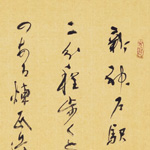 新神戸駅
二分程歩くと
のある煉瓦